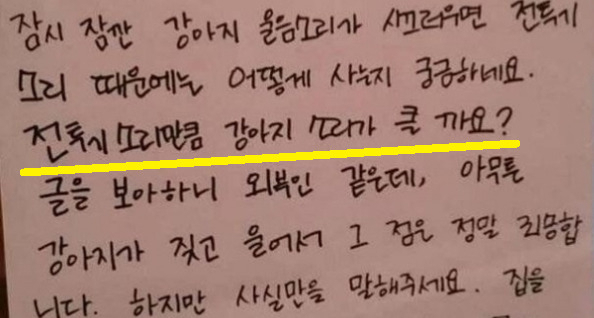 잠시 잠깐 강아지 울음소리가 시끄러우면 전투기
소리 때문에는 어떻게 사는지 궁금하네요.
전투기 소리만큼 강아지 소리가 클 까요?
글을 보아하니 외부인 같은데, 아무튼
강아지가 짖고 울어서 그 점은 정말 죄송합
니다. 하지만 사실만을 말해주세요. 집을